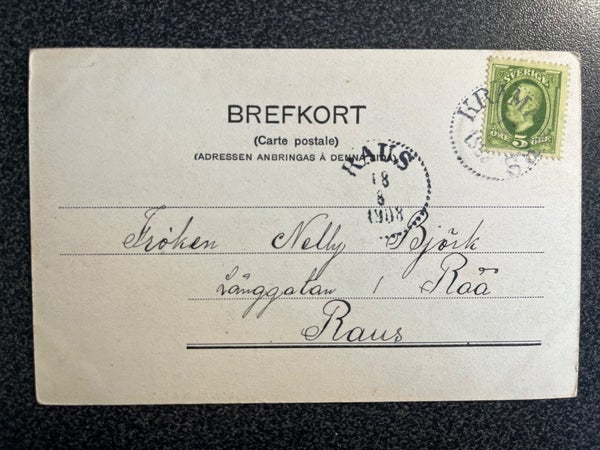 SVERIGE
5
BREFKORT
(Carte postale)
(ADRESSEN ANBRINGAS Å DENNA SIDA)
RAUS
18
8
1908
Fröken Nelly Björk
Långgatan 1 Råå
Raus